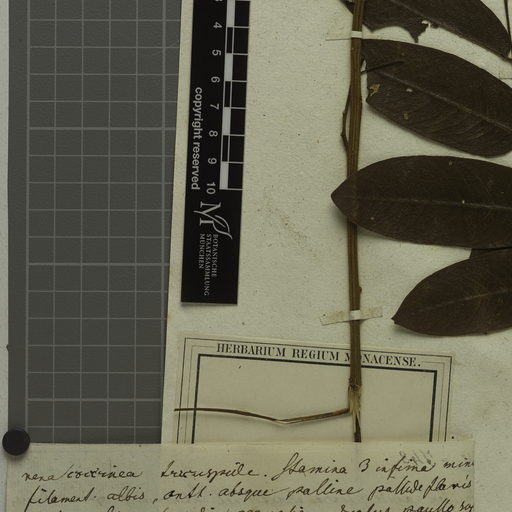 4
5
6
7
8
9
10
copyright reserved
BOTANISCHE
STAATSSAMMLUNG
MÜNCHEN
HERBARIUM REGIUM MONACENSE.
nena coccinea tricuspide. Stamina 3 infima min
filament. albis, anth. absque polline pallide flavis
paullo